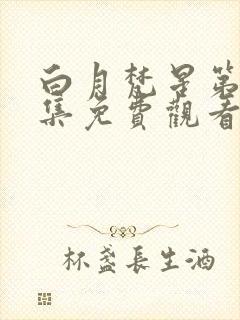 白月梵星第
集免費觀看
杯盞長生酒